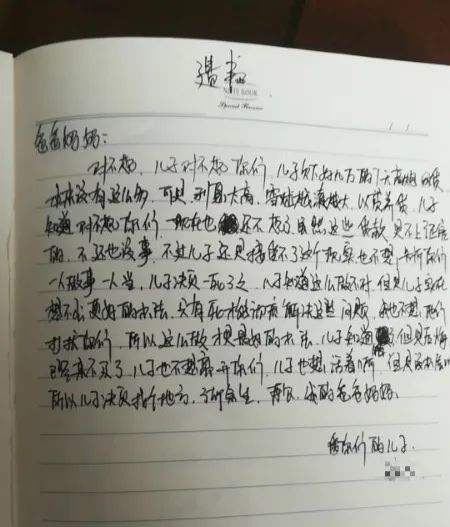 遗书
NOTE BOOK
爸爸妈妈：
对不起，儿子对不起你们，儿子欠下好几万的高利贷
本来没有这么多，可是利息太高，窟窿越滚越大，以贷养贷，儿子
知道对不起你们，现在也还不起了虽然这些贷款是不上征信
的，不还也没事，不过儿子还是接受不了这个现实也不想
一人做事一人当，儿子决定一死了之，儿子知道这么做不对，但是儿子实在
想不出更好的办法，只有死才能彻底解决这些问题，我也不想他们
打扰你们，所以这么做才是最好的办法，儿子知道错了但是后悔
已经来不及了，儿子也不想离开你们，儿子也想活着，但是没办法
所以儿子决定找个地方，了此余生，再见，我的爸爸妈妈。
你们的儿子